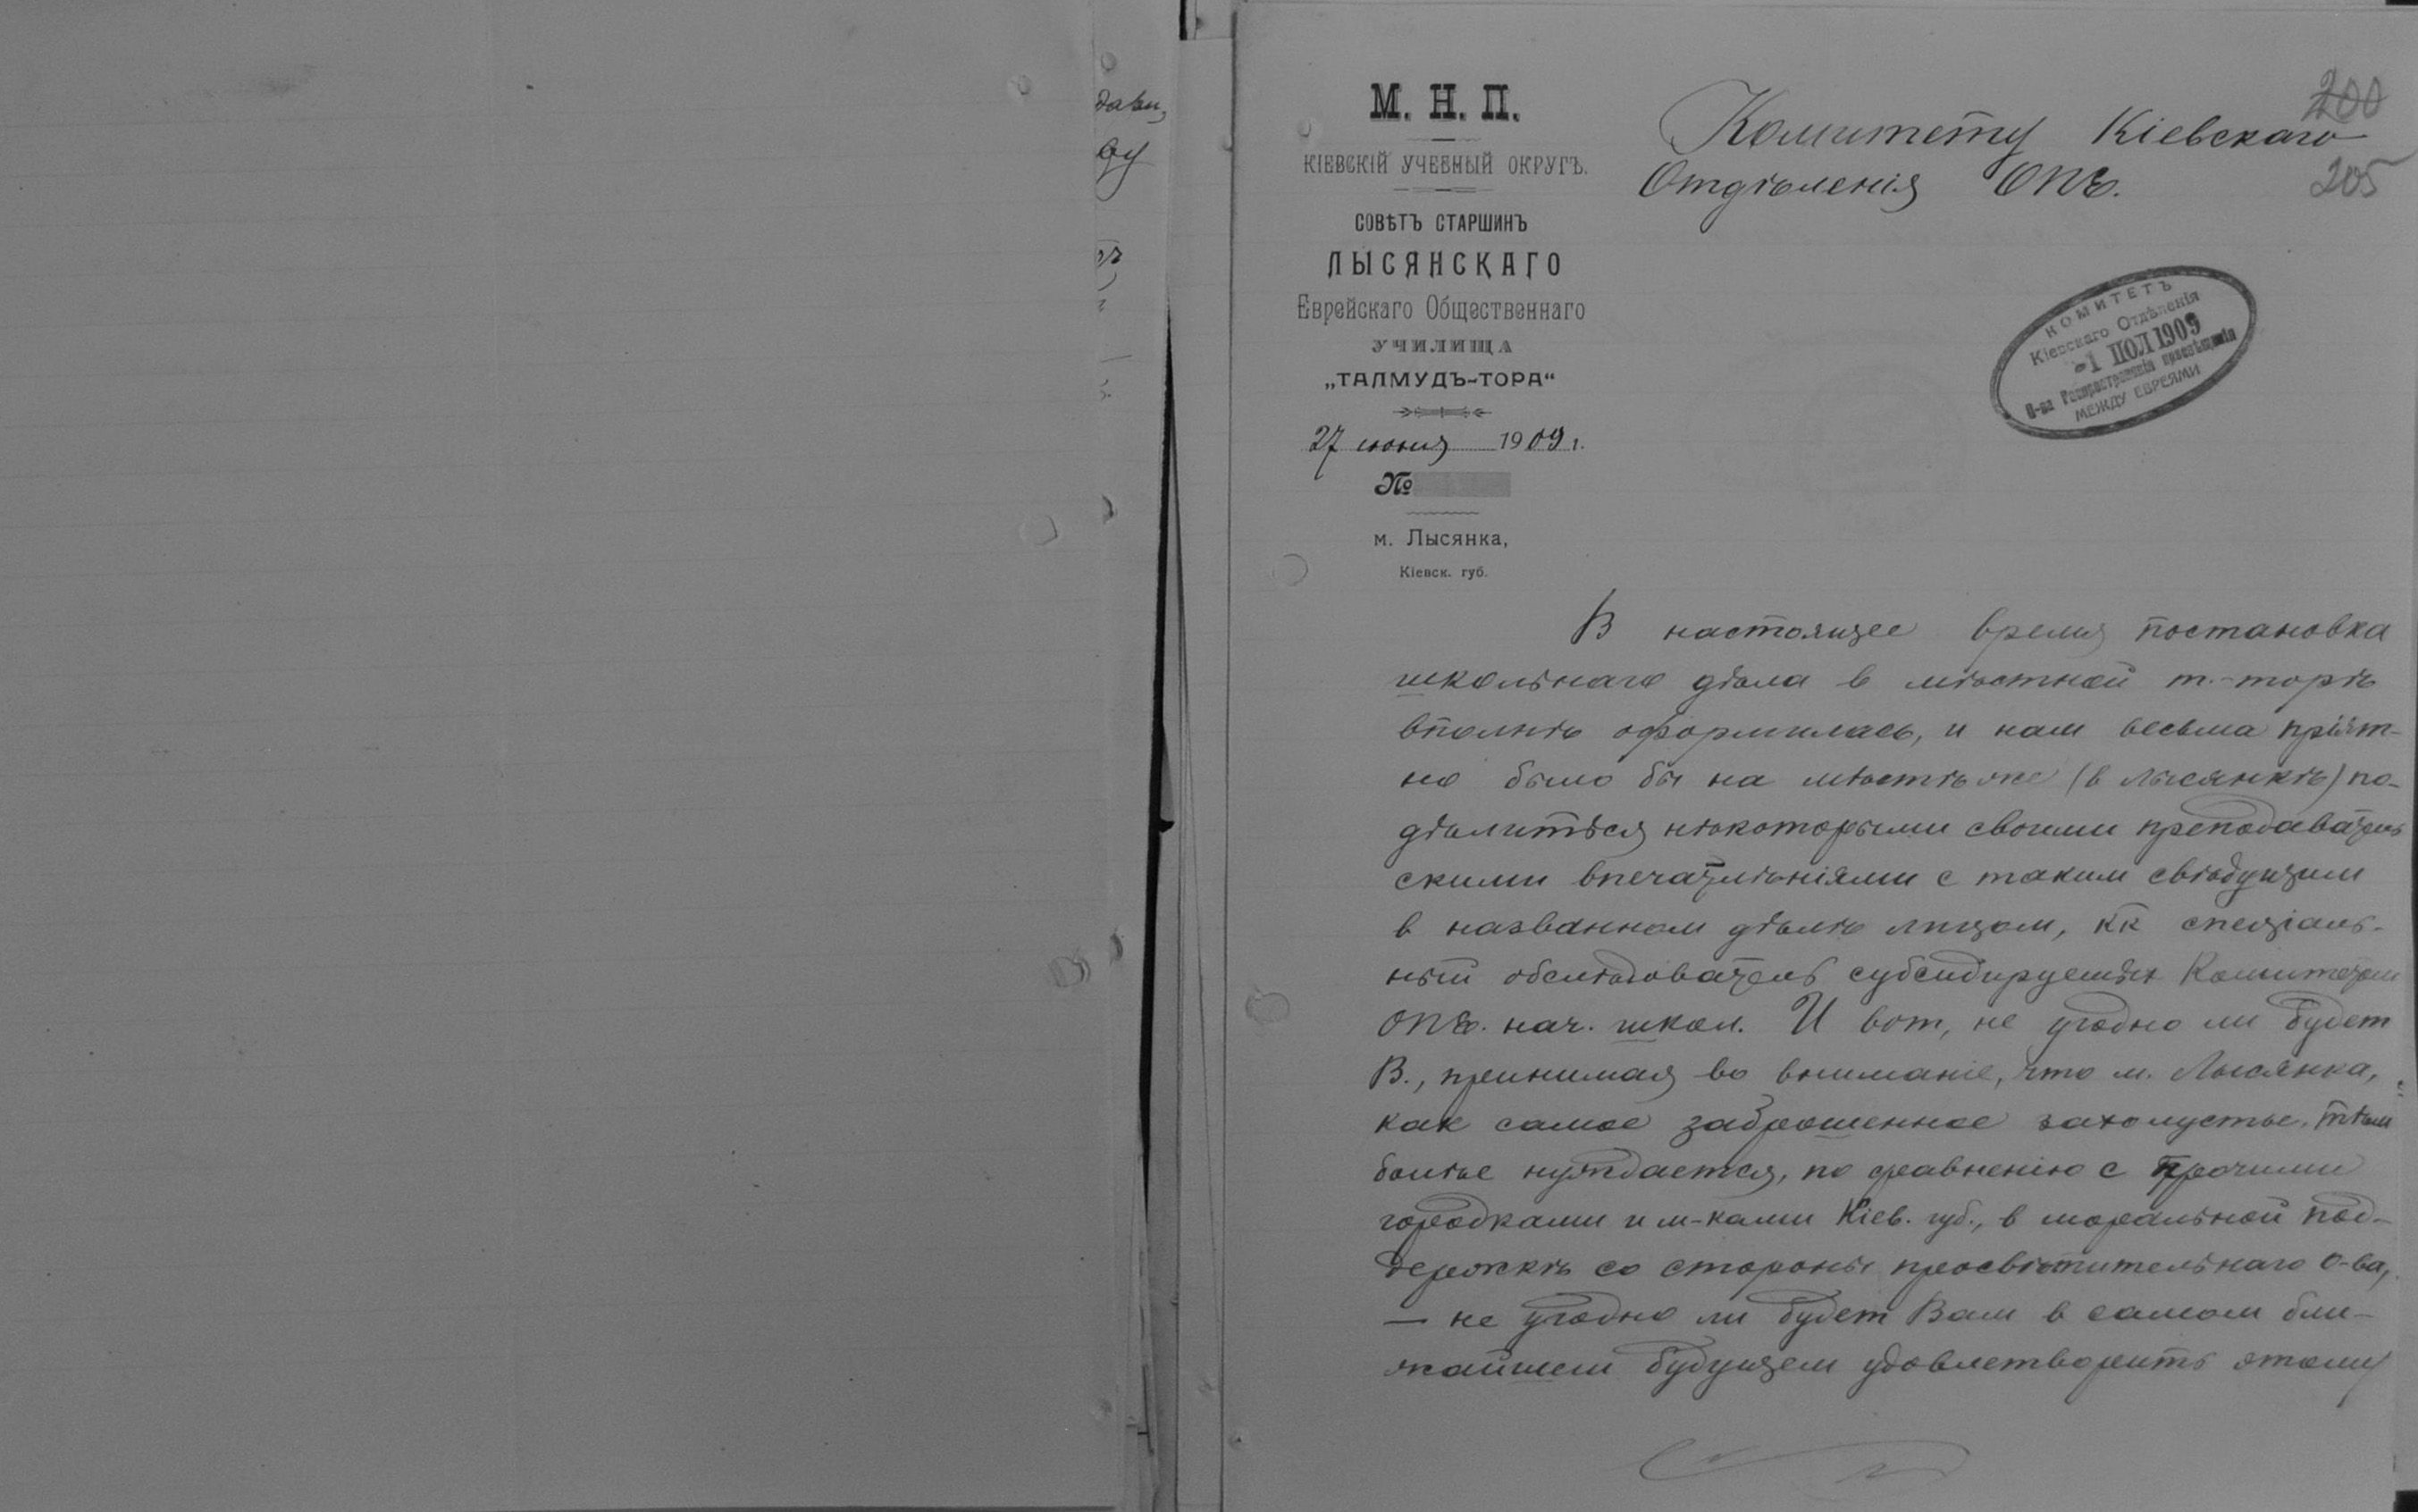 дази,
ву
М. Н. П.
КІЕВСКІЙ УЧЕБНЫЙ ОКРУГЪ.
СОВѢТЪ СТАРШИНЪ
ЛЫСЯНСКАГО
Еврейскаго Общественнаго
УЧИЛИЩА
„ТАЛМУДЪ-ТОРА“
27 июня 1909 г.
№
м. Лысянка,
Кіевск. губ.
200
Комитету Кіевскаго
205
Отдѣленія ОПЕ.
КОМИТЕТЪ
Кіевскаго Отдѣленія
-1 ІЮЛ 1909
О-ва Распространенія просвѣщенія
МЕЖДУ ЕВРЕЯМИ
В настоящее время постановка
школьнаго дѣла в мѣстной т.-торѣ
вполнѣ оформилась, и нам весьма пріят-
но было бы на мѣстѣ же (в Лысянкѣ) по-
дѣлиться нѣкоторыми своими преподаватель
скими впечатлѣніями с таким свѣдущим
в названном дѣлѣ лицом, кк спеціаль-
ный обслѣдователь субсидируемых Комитетом
ОПЕ. нач. школ. И вот, не угодно ли будет
В., принимая во вниманіе, что м. Лысянка,
как самое заброшенное захолустье, тѣм
болѣе нуждается, по сравненію с прочими
городками и м-ками Кіев. губ., в моральной под-
держкѣ со стороны просвѣтительнаго о-ва,
— не угодно ли будет Вам в самом бли-
жайшем будущем удовлетворить этому